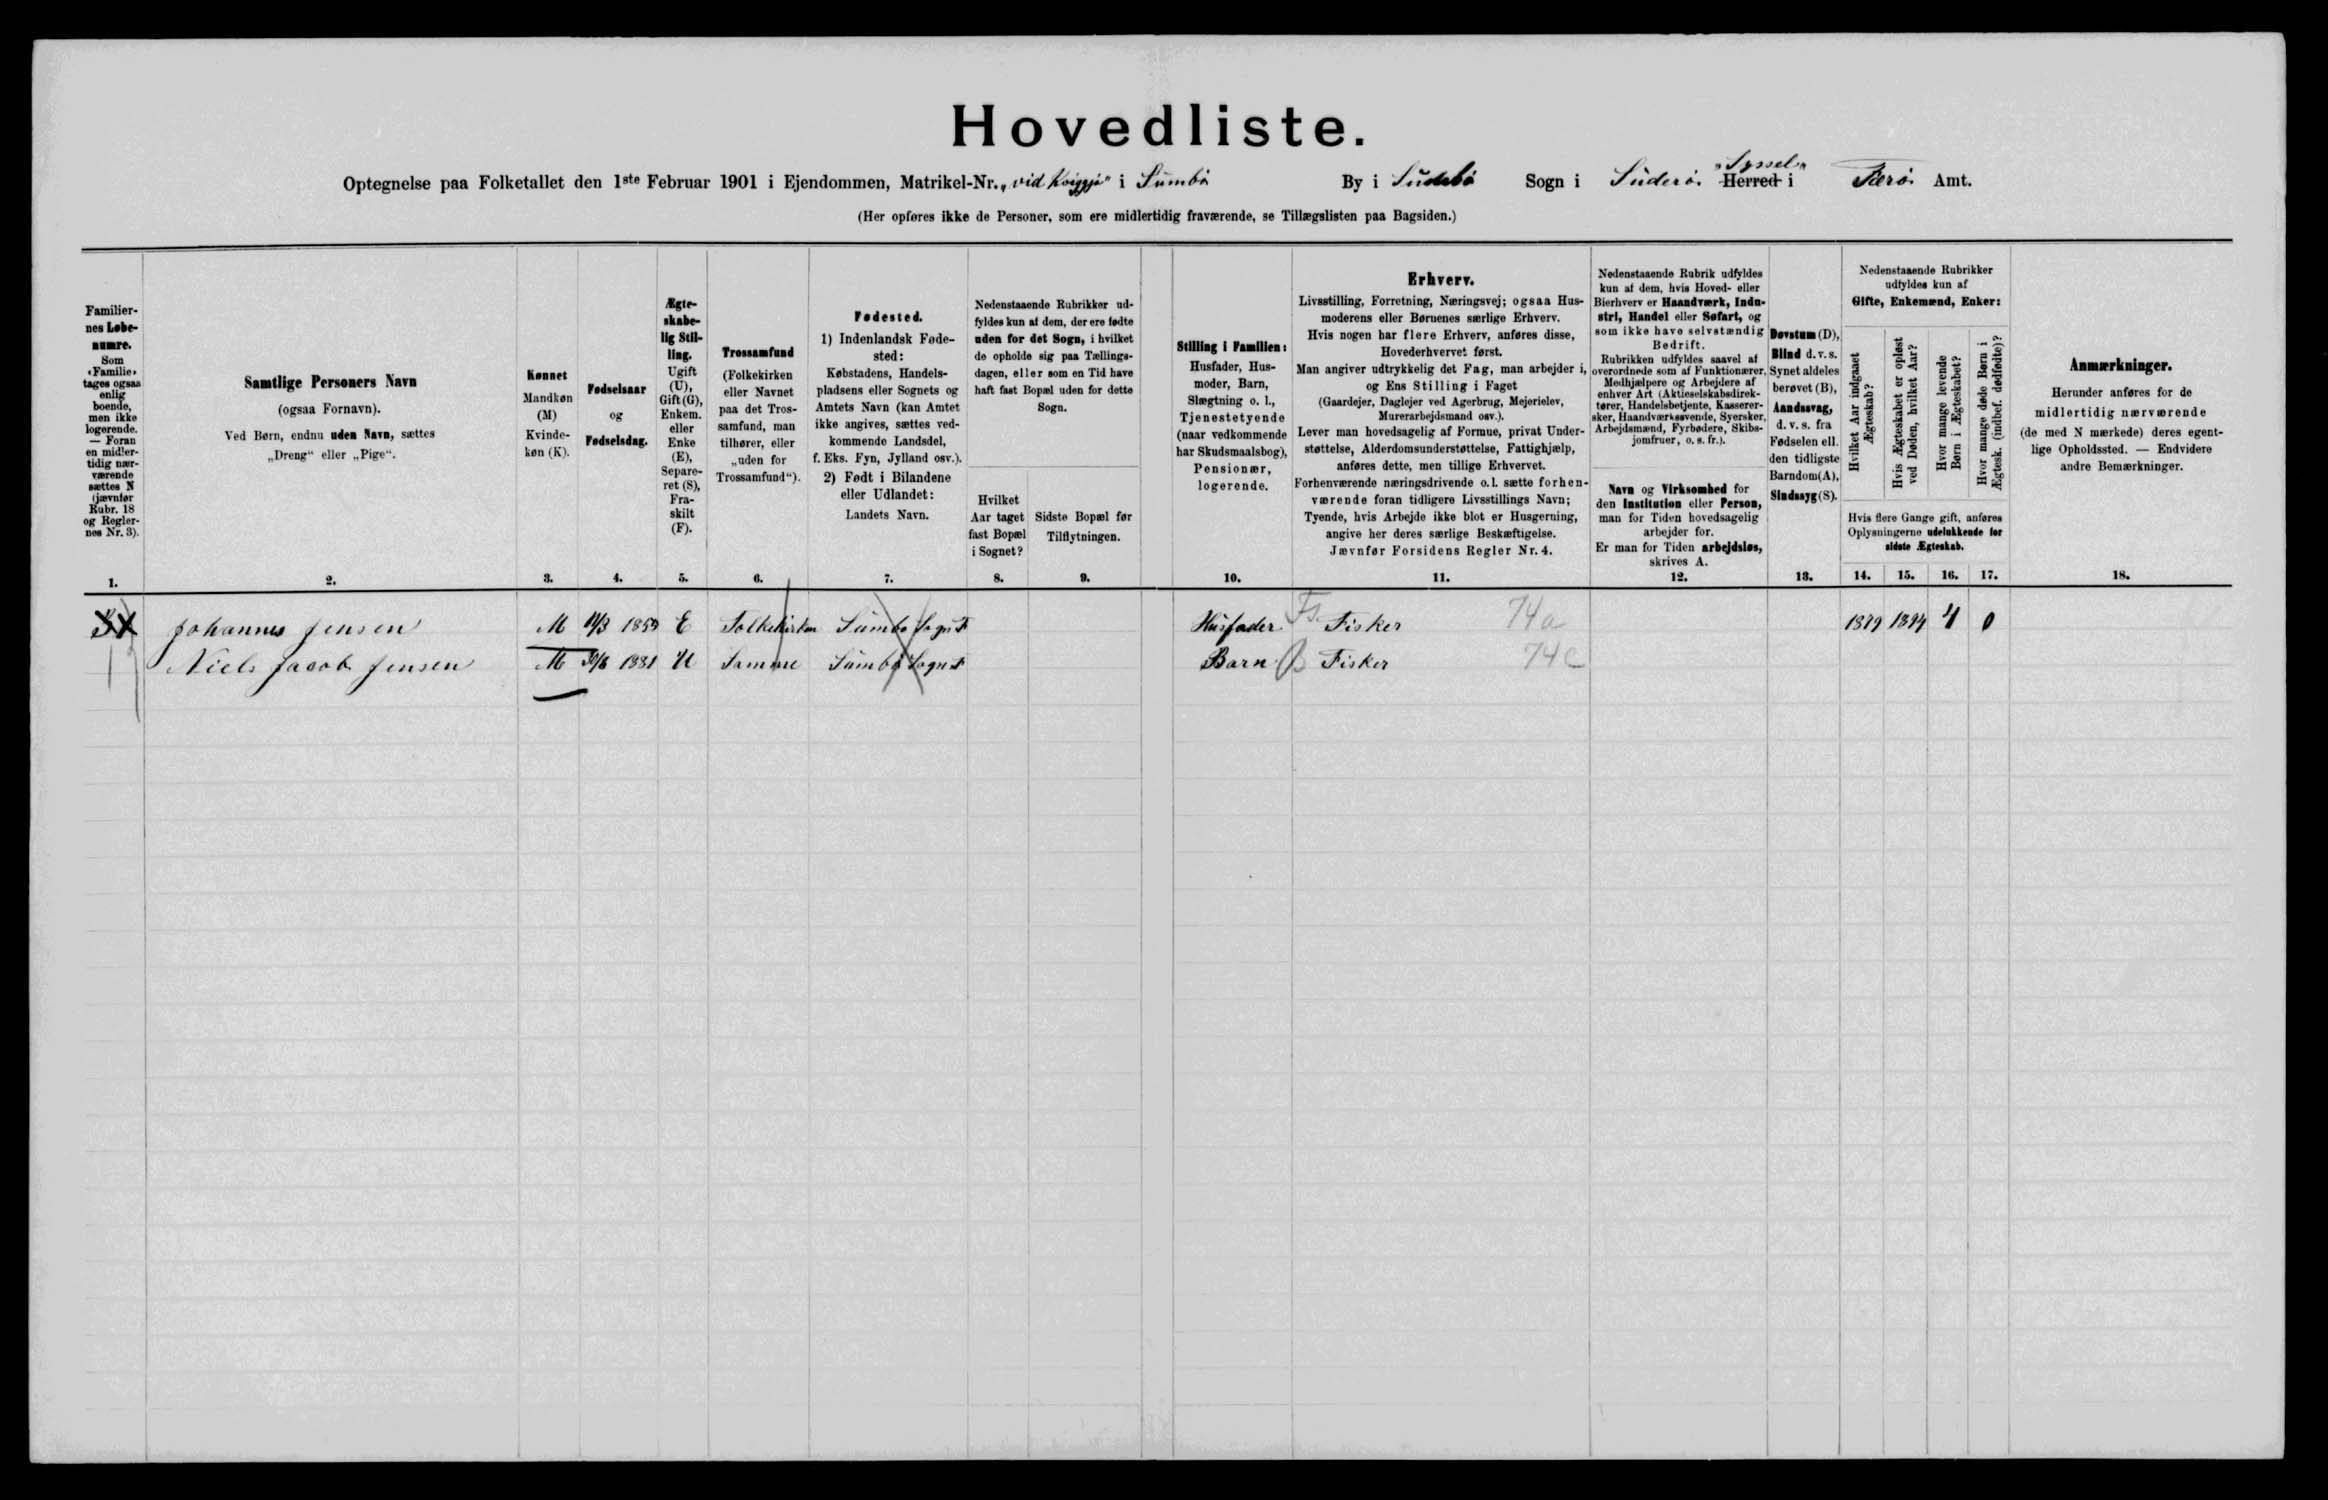 Hovedliste.
Optegnelse paa Folketallet den 1ste Februar 1901 i Ejendommen, Matrikel-Nr. „vid Kviggjo" i Sumbö By i Sudebö Sogn i Süderö „Syssel" Herred i Færö Amt.
(Her opføres ikke de Personer, som ere midlertidig fraværende, se Tillægslisten paa Bagsiden.)
Familiernes Løbenumre.
Som «Familie» tages ogsaa enlig boende, men ikke logerende. — Foran en midlertidig nærværende sættes N (jævnfør Rubr. 18 og Reglernes Nr. 3).
Samtlige Personers Navn
(ogsaa Fornavn).
Ved Børn, endnu uden Navn, sættes
„Dreng" eller „Pige".
Kønnet
Mandkøn (M)
Kvindekøn (K).
Fødselsaar
og
Fødselsdag.
Ægteskabelig Stilling.
Ugift (U), Gift (G), Enkem. eller Enke (E), Separeret (S), Fraskilt (F).
Trossamfund
(Folkekirken eller Navnet paa det Trossamfund, man tilhører, eller „uden for Trossamfund").
Fødested.
1) Indenlandsk Fødested:
Købstadens, Handelspladsens eller Sognets og Amtets Navn (kan Amtet ikke angives, sættes vedkommende Landsdel, f. Eks. Fyn, Jylland osv.).
2) Født i Bilandene eller Udlandet:
Landets Navn.
Nedenstaaende Rubrikker udfyldes kun af dem, der ere fødte uden for det Sogn, i hvilket de opholde sig paa Tællingsdagen, eller som en Tid have haft fast Bopæl uden for dette Sogn.
Hvilket Aar taget fast Bopæl i Sognet?
Sidste Bopæl før Tilflytningen.
Stilling i Familien:
Husfader, Husmoder, Barn, Slægtning o. l., Tjenestetyende (naar vedkommende har Skudsmaalsbog), Pensionær, logerende.
Erhverv.
Livsstilling, Forretning, Næringsvej; ogsaa Husmoderens eller Børnenes særlige Erhverv.
Hvis nogen har flere Erhverv, anføres disse, Hovederhvervet først.
Man angiver udtrykkelig det Fag, man arbejder i, og Ens Stilling i Faget
(Gaardejer, Daglejer ved Agerbrug, Mejerielev, Murerarbejdsmand osv.).
Lever man hovedsagelig af Formue, privat Understøttelse, Alderdomsunderstøttelse, Fattighjælp, anføres dette, men tillige Erhvervet.
Forhenværende næringsdrivende o. l. sætte forhenværende foran tidligere Livsstillings Navn;
Tyende, hvis Arbejde ikke blot er Husgerning, angive her deres særlige Beskæftigelse.
Jævnfør Forsidens Regler Nr. 4.
Nedenstaaende Rubrik udfyldes kun af dem, hvis Hoved- eller Bierhverv er Haandværk, Industri, Handel eller Søfart, og som ikke have selvstændig Bedrift.
Rubrikken udfyldes saavel af overordnede som af Funktionærer, Medhjælpere og Arbejdere af enhver Art (Aktieselskabsdirektører, Handelsbetjente, Kasserersker, Haandværkssvende, Syersker, Arbejdsmænd, Fyrbødere, Skibsjomfruer, o. s. fr.).
Navn og Virksomhed for den Institution eller Person, man for Tiden hovedsagelig arbejder for.
Er man for Tiden arbejdsløs, skrives A.
Døvstum (D),
Blind d. v. s. Synet aldeles berøvet (B),
Aandssvag, d. v. s. fra Fødselen ell. den tidligste Barndom (A),
Sindssyg (S).
Nedenstaaende Rubrikker udfyldes kun af
Gifte, Enkemænd, Enker:
Hvilket Aar indgaaet Ægteskab?
Hvis Ægteskabet er opløst ved Døden, hvilket Aar?
Hvor mange levende Børn i Ægteskabet?
Hvor mange døde Børn i Ægtesk. (indbef. dødfødte)?
Hvis flere Gange gift, anføres Oplysningerne udelukkende for sidste Ægteskab.
Anmærkninger.
Herunder anføres for de midlertidig nærværende (de med N mærkede) deres egentlige Opholdssted. — Endvidere andre Bemærkninger.
1. 2. 3. 4. 5. 6. 7. 8. 9. 10. 11. 12. 13. 14. 15. 16. 17. 18.
Johannes Jensen M 11/3 1853 E Folkekirken Sumbo Sogn F Husfader Fs. Fisker 74a 1879 1894 4 0
Niels Jacob Jensen M 30/8 1881 U Samme Sumbo Sogn F Barn B Fisker 74c